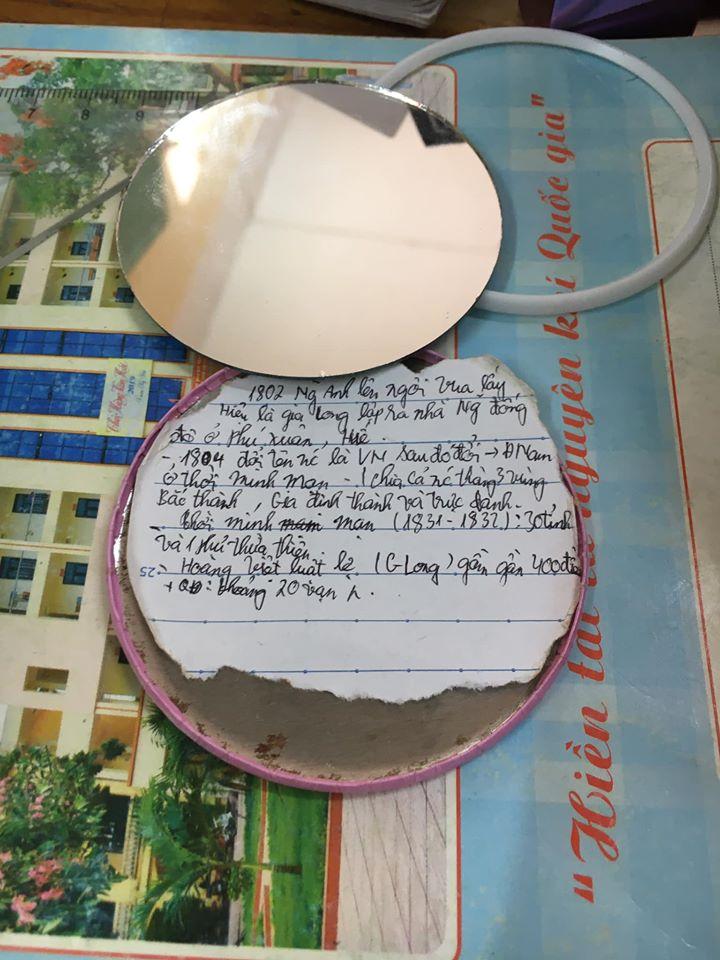 1802 Ng Anh lên ngôi vua lấy
Hiệu là gia Long lập ra nhà Ng̃ đóng
đô ở Phú xuân, Huế.
- 1804 đổi tên nc là VN sau đó đổi → ĐNam
ở thời minh mạn - (chia cả nc thàng 3 vùng
Bắc thành, Gia định thành và trực doanh.
- thời minh mạn (1831-1832): 30 tỉnh
và 1 phủ thừa thiên.
- Hoàng Việt luật lệ (G Long) gồm gần 400 điều
+ QĐ: khoảng 20 vạn n.
25
7 8 9
2019
"Hiền tài là nguyên khí Quốc gia"